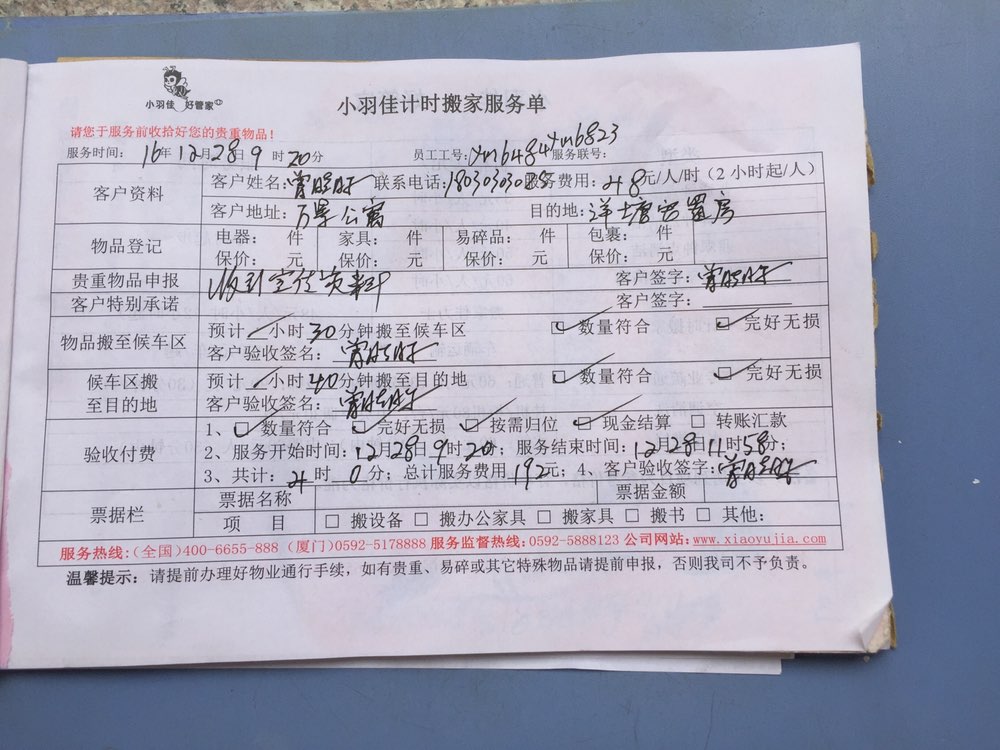 小羽佳 好管家
小羽佳计时搬家服务单
请您于服务前收拾好您的贵重物品！
服务时间： 16年12月28日9时20分 员工工号：xm6484 xm6823 服务联号：
客户资料 客户姓名： 联系电话： 服务费用：48元/人/时（2小时起/人）
客户地址：万景公寓 目的地：洋塘安置房
物品登记 电器： 件 家具： 件 易碎品： 件 包裹： 件
保价： 元 保价： 元 保价： 元 保价： 元
贵重物品申报 客户签字：
客户特别承诺 客户签字：
物品搬至候车区 预计 小时30分钟搬至候车区 □数量符合 □完好无损
客户验收签名：
候车区搬至目的地 预计 小时40分钟搬至目的地 □数量符合 □完好无损
客户验收签名：
验收付费 1、□数量符合 □完好无损 □按需归位 □现金结算 □转账汇款
2、服务开始时间：12月28日9时20分；服务结束时间：12月28日11时58分；
3、共计： 时0分；总计服务费用192元；4、客户验收签字：
票据栏 票据名称 票据金额
项 目 □搬设备 □搬办公家具 □搬家具 □搬书 □其他：
服务热线：（全国）400-6655-888（厦门）0592-5178888 服务监督热线：0592-5888123 公司网站：www.xiaoyujia.com
温馨提示：请提前办理好物业通行手续，如有贵重、易碎或其它特殊物品请提前申报，否则我司不予负责。